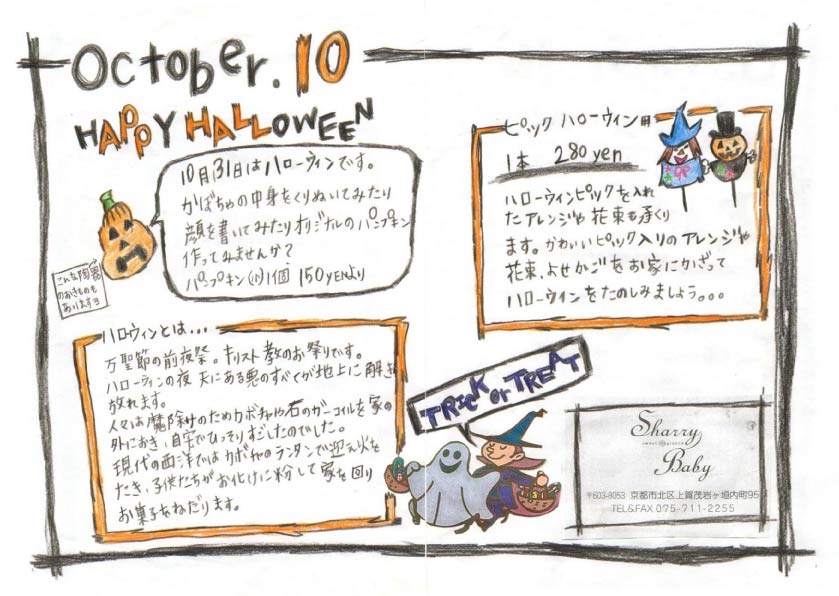 October. 10
HAPPY HALLOWEEN
10月31日はハローウィンです。
かぼちゃの中身をくりぬいてみたり
顔を書いてみたりオリジナルのパンプキン
作ってみませんか?
パンプキン(小)1個 150YENより
こんな陶器
のおきものも
あります
ハロウィンとは...
万聖節の前夜祭。キリスト教のお祭りです。
ハローウィンの夜 天にある悪のすべてが地上に解き
放れます。
人々は魔除けのためカボチャや石のガーゴイルを家の
外におき、自宅でひっそりすごしたのでした。
現代の西洋ではカボチャのランタンで迎え火を
たき、子供たちがお化けに粉して家を回り
お菓子をねだります。
ピック ハローウィン用
1本 280yen
ハローウィンピックを入れ
たアレンジや花束も承くり
ます。かわいいピック入りのアレンジや
花束、よせかごをお家にかざって
ハローウィンをたのしみましょう。。。
TRICK or TREAT
Sharry
sweet green
Baby
〒603-8053 京都市北区上賀茂岩ヶ垣内町95
TEL&FAX 075-711-2255